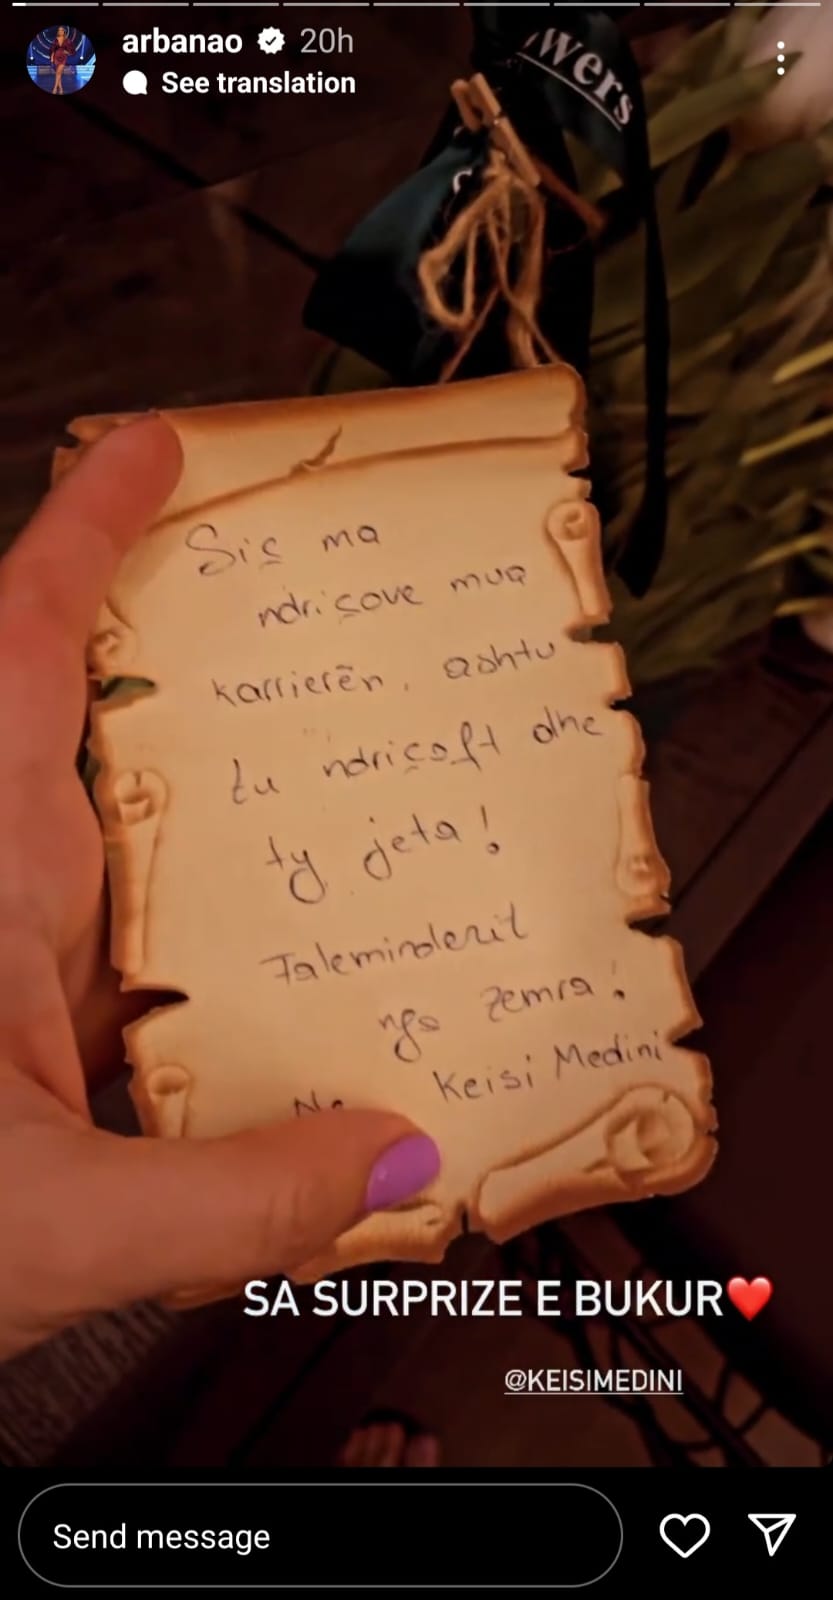 arbanao 20h
See translation
wers
Siç ma
ndriçove mua
karrierën, ashtu
tu ndriçoft dhe
ty jeta!
Faleminderit
nga zemra!
Keisi Medini
SA SURPRIZE E BUKUR❤️
@KEISIMEDINI
Send message